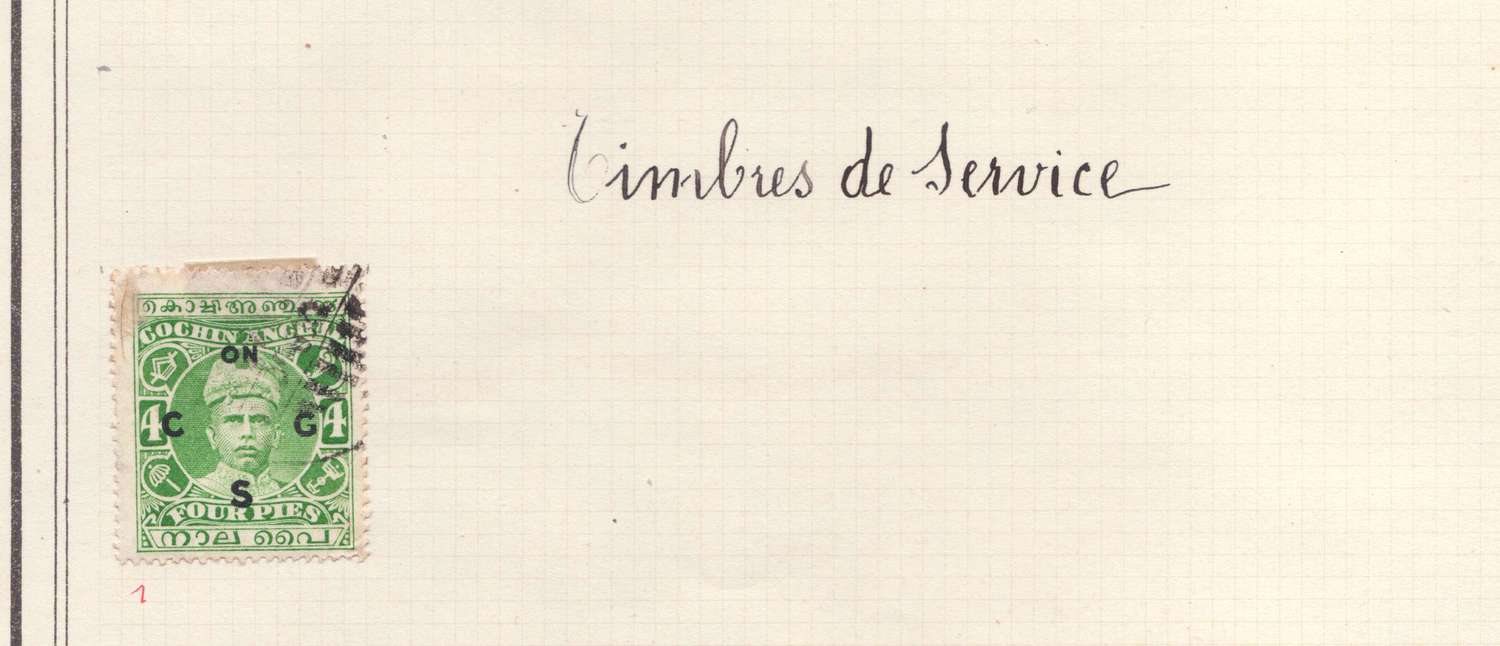 Timbres de Service
കൊച്ചി അഞ്ചൽ
COCHIN ANCHEL
ON
4 C G 4
S
FOUR PIES
നാല പൈ
1